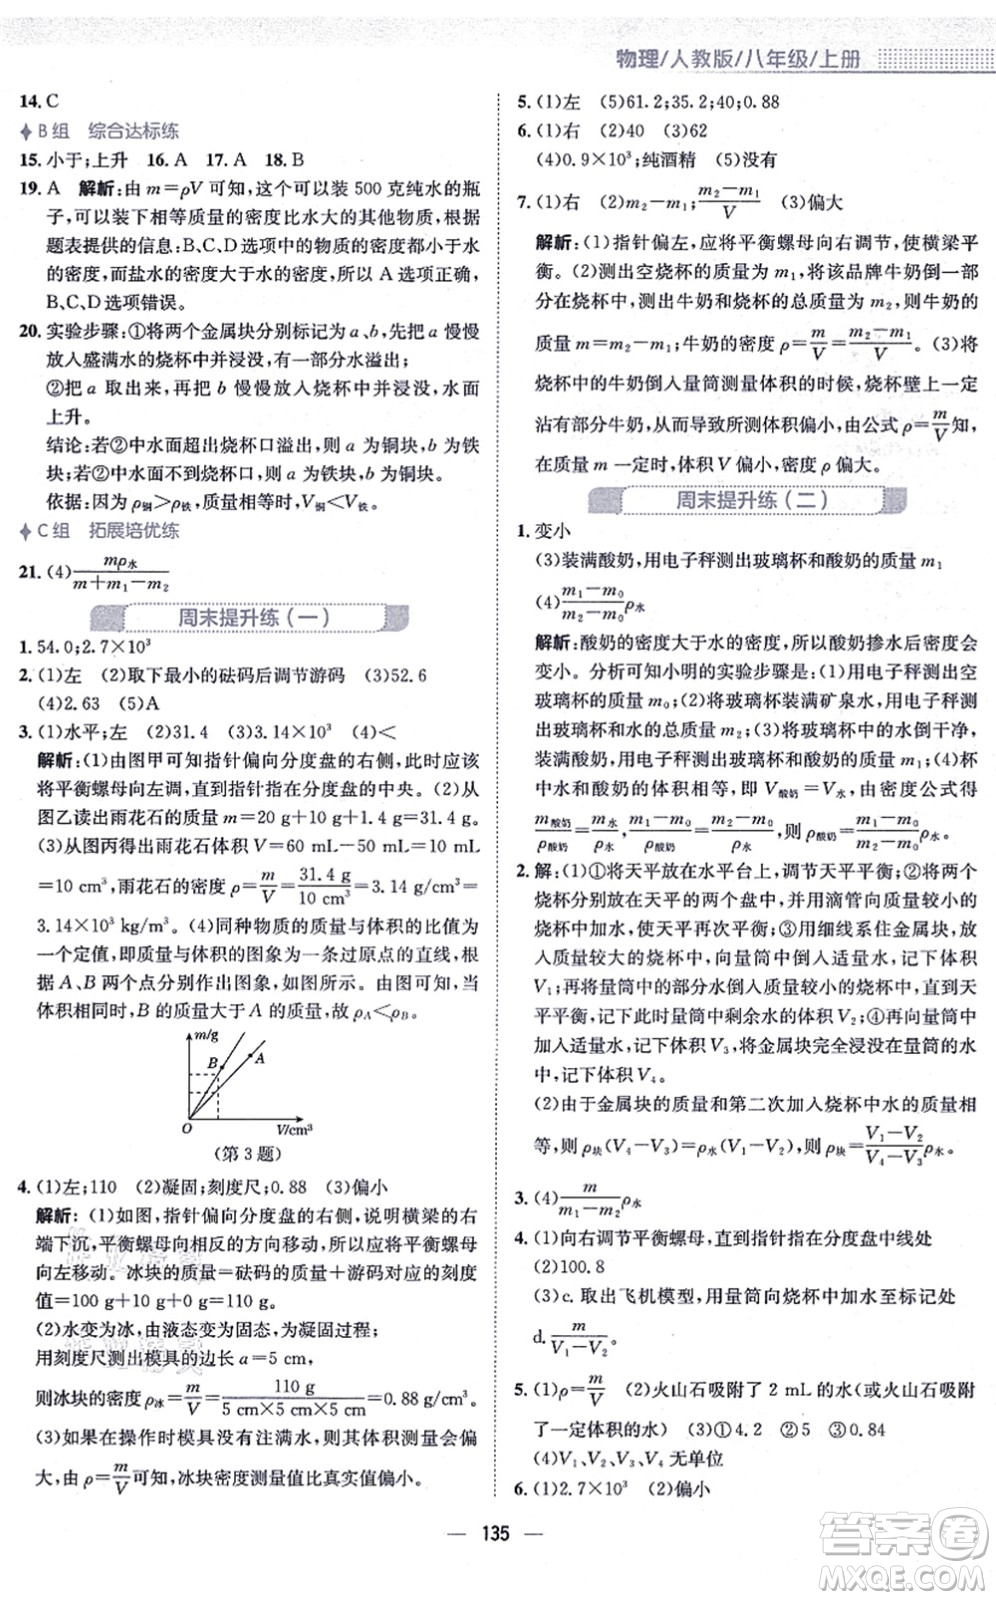 物理/人教版/八年级/上册
14. C
B组 综合达标练
15. 小于;上升 16. A 17. A 18. B
19. A 解析:由 m=ρV 可知,这个可以装 500 克纯水的瓶
子,可以装下相等质量的密度比水大的其他物质,根据
题表提供的信息:B、C、D 选项中的物质的密度都小于水
的密度,而盐水的密度大于水的密度;所以 A 选项正确,
B、C、D 选项错误。
20. 实验步骤:①将两个金属块分别标记为 a、b,先把 a 慢慢
放入盛满水的烧杯中并浸没,有一部分水溢出;
②把 a 取出来,再把 b 慢慢放入烧杯中并浸没,水面
上升。
结论:若②中水面超出烧杯口溢出,则 a 为铜块,b 为铁
块;若②中水面不到烧杯口,则 a 为铁块,b 为铜块。
依据:因为 ρ铜>ρ铁,质量相等,所以 V铜<V铁。
C组 拓展培优练
21. (4) mρ水/(m+m₁−m₂)
周末提升练(一)
1. 54.0;2.7×10³
2. (1)左 (2)取下最小的砝码后调节游码 (3)52.6
(4)2.63 (5)A
3. (1)水平;左 (2)31.4 (3)3.14×10³ (4)<
解析:(1)由图甲可知指针偏向分度盘的右侧,此时应该
将平衡螺母向左调,直到指针指在分度盘的中央。(2)从
图乙读出雨花石的质量 m=20 g+10 g+1.4 g=31.4 g。
(3)从图丙中得出雨花石体积 V=60 mL−50 mL=10 mL
=10 cm³,雨花石的密度 ρ=m/V=31.4 g/10 cm³=3.14 g/cm³=
3.14×10³ kg/m³。(4)同种物质的质量与体积的比值为
一个定值,即质量与体积的图象为一条过原点的直线,根
据 A、B 两个点分别作出图象,如图所示。由图象可得,当
体积相等时,B 的质量大于 A 的质量,故 ρA<ρB。
m/g
B
A
O V/cm³
(第 3 题)
4. (1)左;110 (2)凝固;刻度尺;0.88 (3)偏小
解析:(1)如图,指针偏向分度盘的右侧,说明横梁的右
端下沉,平衡螺母向相反的方向移动,所以平衡螺母
向左移动。冰块的质量=砝码的质量+游码对应的刻度
值=100 g+10 g+0 g=110 g。
(2)水变为冰,由液态变为固态,为凝固过程;
用刻度尺测出模具的边长 a=5 cm,
则冰块的密度 ρ冰=m/V=110 g/(5 cm×5 cm×5 cm)=0.88 g/cm³。
(3)如果在操作时模具没有注满水,则体积测量值偏
大,由 ρ=m/V可知,冰块密度测量值比真实值偏小。
5. (1)左 (5)61.2;35.2;40;0.88
6. (1)右 (2)40 (3)62
(4)0.9×10³;纯酒精 (5)没有
7. (1)右 (2)m₂−m₁;(m₂−m₁)/V (3)偏大
解析:(1)指针偏左,应将平衡螺母向右调节,使横梁平
衡。(2)测出空烧杯的质量为 m₁,将该品牌牛奶倒一部分
在烧杯中,测出牛奶与烧杯的总质量为 m₂,则牛奶的
质量 m=m₂−m₁;牛奶的密度 ρ=m/V=(m₂−m₁)/V。(3)将
烧杯中的牛奶倒入量筒测量体积的时候,烧杯壁上一定
沾有部分牛奶,则导致所测体积偏小,由公式 ρ=m/V知,
在质量 m 一定时,体积 V 偏小,密度 ρ 偏大。
周末提升练(二)
1. 变小
(3)装满酸奶,用电子秤测出玻璃杯和酸奶的质量 m₁
(4) (m₁−m₀)/(m₂−m₀) ρ水
解析:酸奶的密度大于水的密度,所以酸奶掺水后密度会
变小。分析可知小明的实验步骤是:(1)用电子秤测出空
玻璃杯的质量 m₀;(2)将玻璃杯装满矿泉水,用电子秤测
出玻璃杯和水的质量 m₂;(3)将玻璃杯中的水倒干净,
装满酸奶,用电子秤测出玻璃杯和酸奶的质量 m₁;(4)杯
中水和酸奶的体积相等,即 V酸奶=V水,由密度公式得
m酸奶/ρ酸奶=m水/ρ水,(m₁−m₀)/ρ酸奶=(m₂−m₀)/ρ水,则 ρ酸奶=(m₁−m₀)/(m₂−m₀) ρ水。
2. 解:(1)①将天平放在水平台上,调节天平平衡;②将两个
烧杯分别放在天平的两个盘中,并用滴管往质量较小的
烧杯中加水,使天平再次平衡;③用细线系金属块,放
入质量较大的烧杯中,向量筒中倒入适量水,记下体积
V₁;并将量筒中的部分水缓慢倒入另一个烧杯中,直到天
平平衡,记下此时量筒中剩余水的体积 V₂;④再向量筒中
加适量水,记下体积 V₃,将金属块完全浸没在量筒的水
中,记下体积 V₄。
(2)由于金属块的质量和第二次加入烧杯中水的质量相
等,则 ρ块(V₄−V₃)=ρ水(V₁−V₂);所以 ρ块=(V₁−V₂)/(V₄−V₃) ρ水。
3. (4) m/(m₁−m₂) ρ水
4. (1)向右调节平衡螺母,直到指针指在分度盘中线处
(2)100.8
(3)c. 取出飞机模型,用量筒向烧杯中加水至标记处
d. m/(V₁−V₂)。
5. (1)ρ=m/V (2)火山石吸附了 2 mL 的水(或火山石吸附
了一定体积的水) (3)①4.2 ②5 ③0.84
(4)V₁、V₂、V₃、V₄ 无单位
6. (1)2.7×10³ (2)偏小
— 135 —
答案卷
MXQE.COM